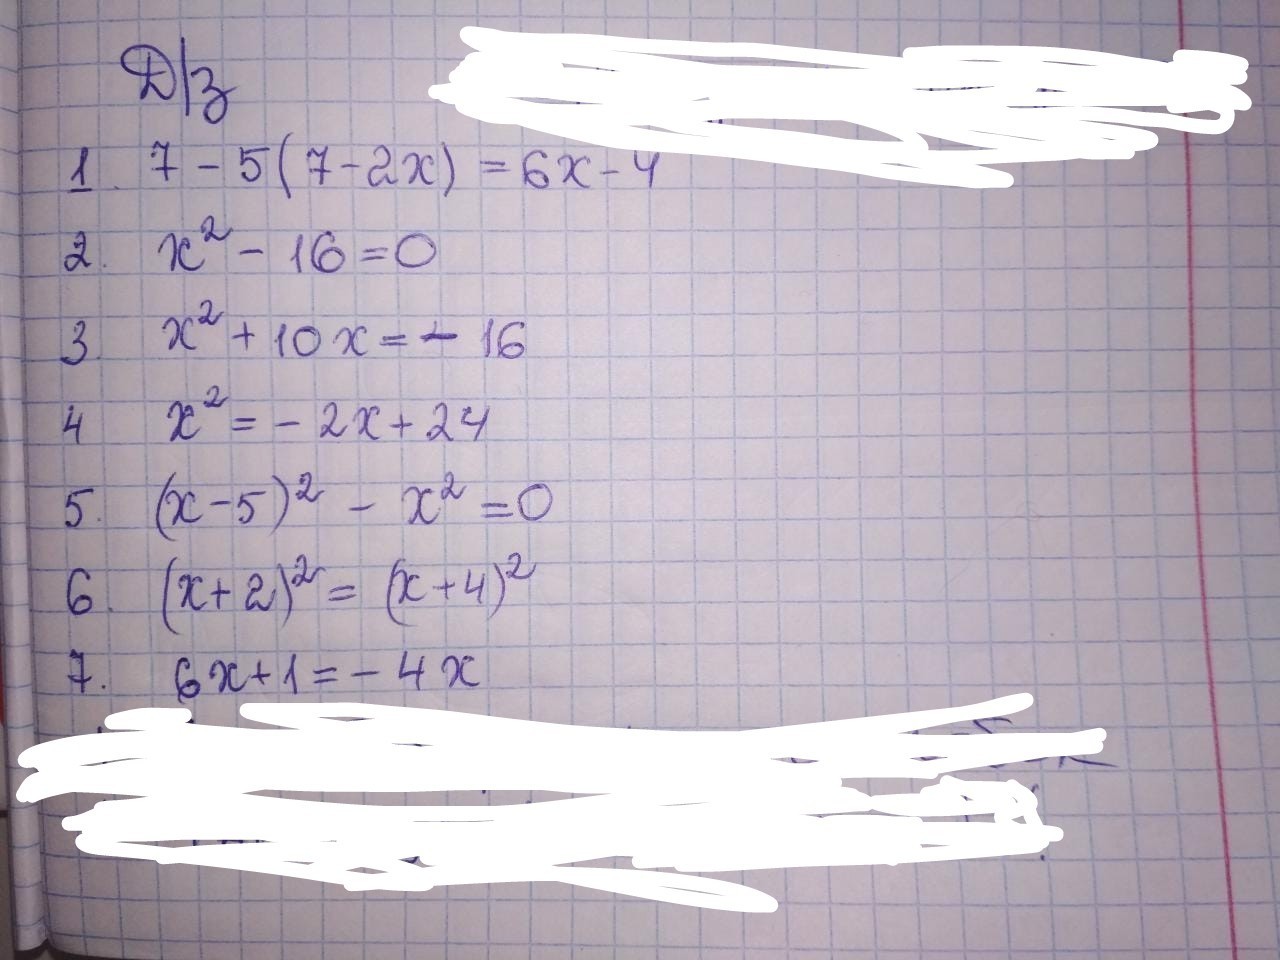 Д/з
1. 7 - 5(7-2x) = 6x - 4
2. x² - 16 = 0
3 x² + 10x = - 16
4 x² = - 2x + 24
5. (x-5)² - x² = 0
6. (x+2)² = (x+4)²
7. 6x+1 = - 4x